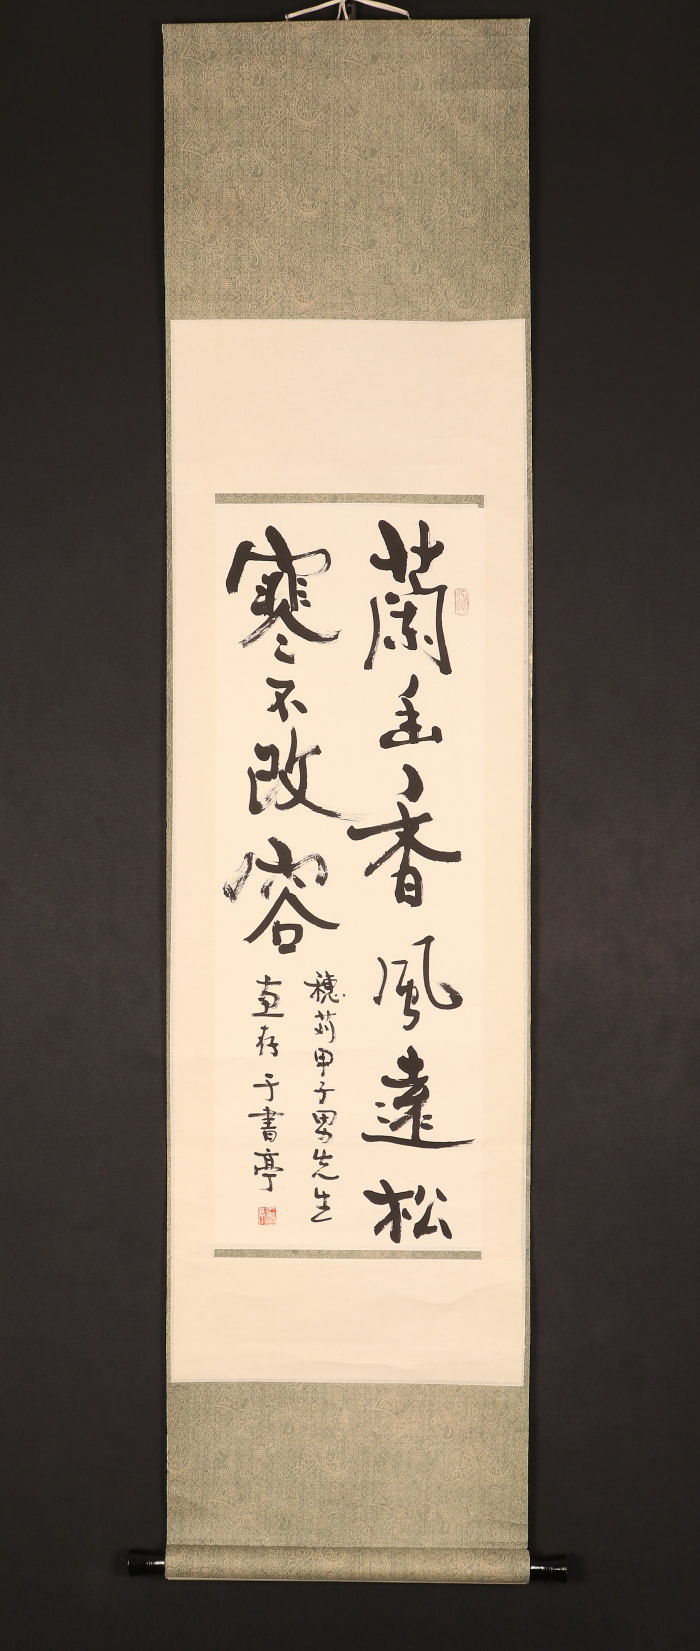 蘭幽香風遠松
寒不改容
穂苅甲子男先生
惠存 于書亭